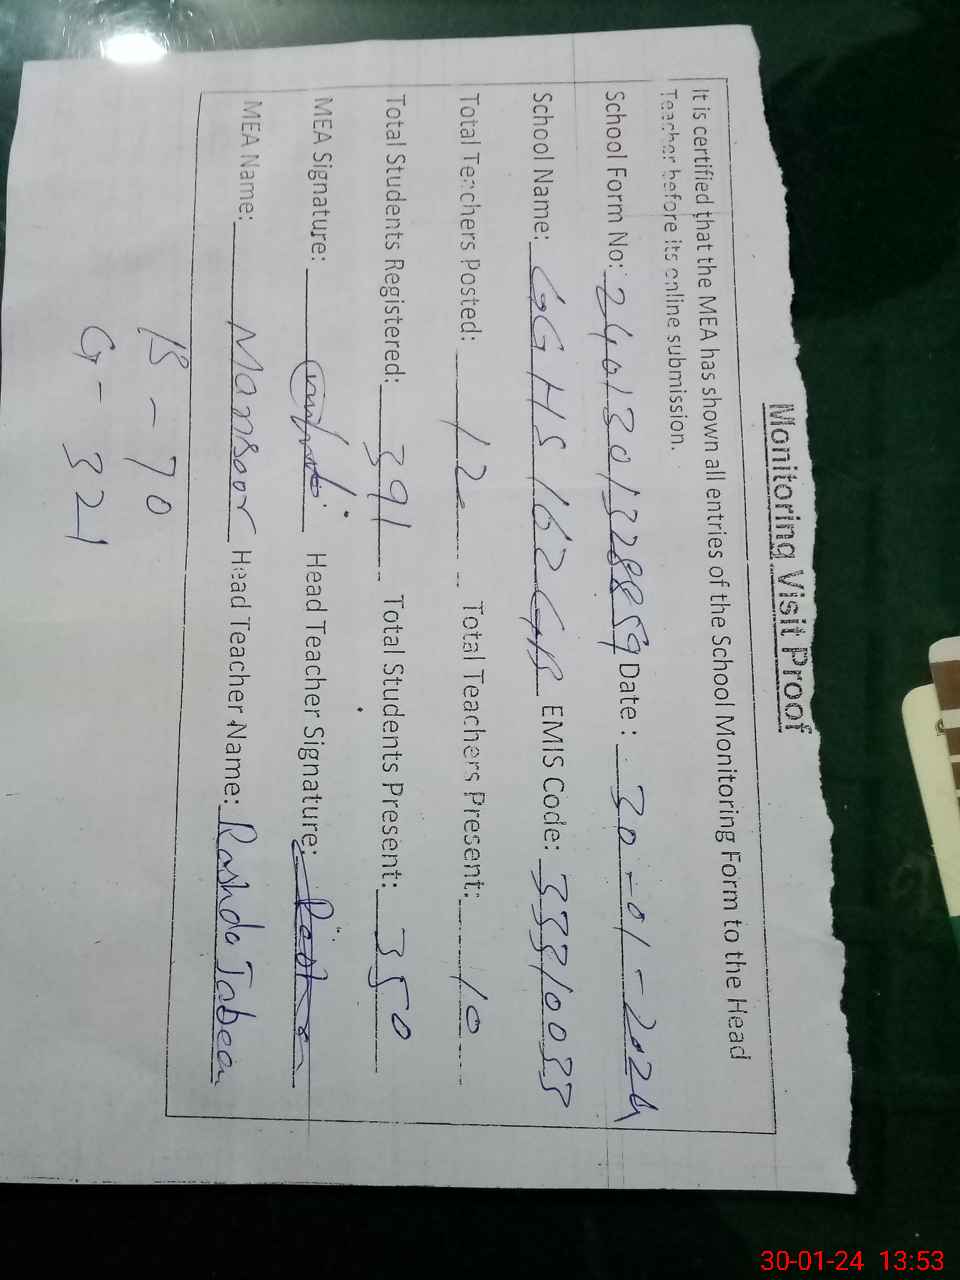 Monitoring Visit Proof
It is certified that the MEA has shown all entries of the School Monitoring Form to the Head
Teacher before its online submission.
School Form No: 2401301328859 Date : 30-01-2024
School Name: GGHS 162 GB EMIS Code: 33310033
Total Teachers Posted: 12 Total Teachers Present: 10
Total Students Registered: 391 Total Students Present: 350
MEA Signature: Head Teacher Signature:
MEA Name: Mansoor Head Teacher Name: Rashda Jabeen
B - 70
G - 321
30-01-24 13:53